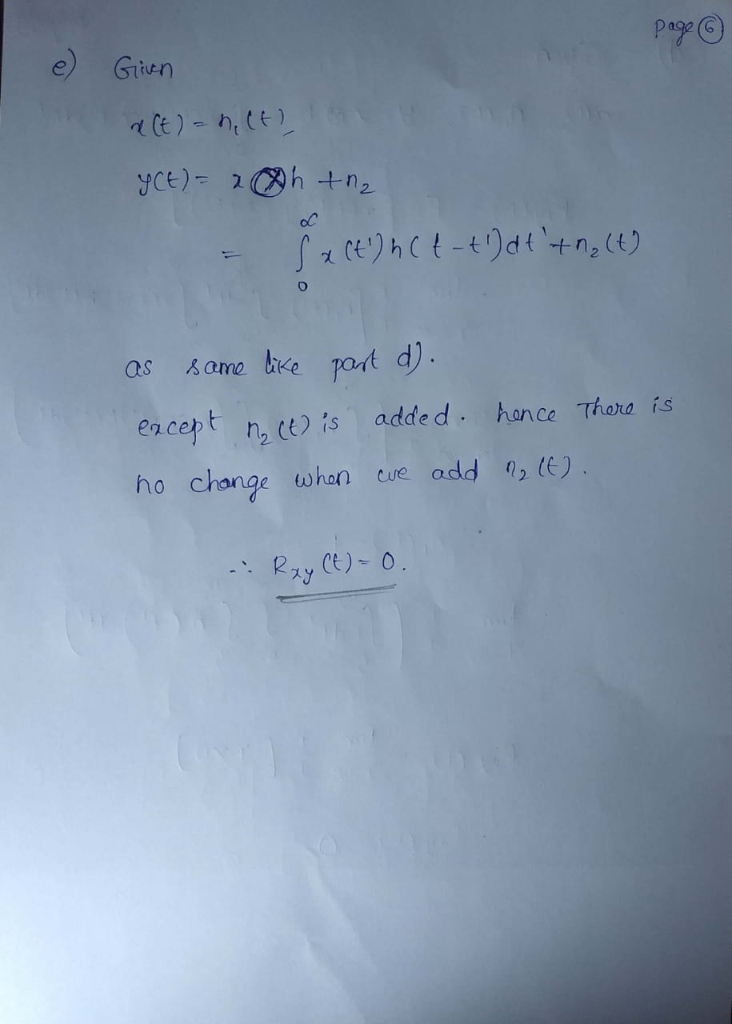 page ⑥
e) Given
x(t) = n₁(t)
y(t) = x ⊗ h + n₂
= ∫₀^∞ x(t')h(t-t')dt' + n₂(t)
as same like part d).
except n₂(t) is added. hence There is
no change when we add n₂(t).
∴ Rxy(t) = 0.